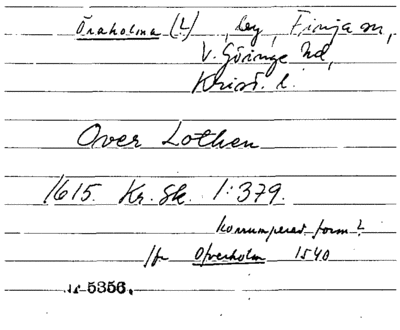 Öraholma (L), by, Finja sn,
V. Göinge hd,
Krist. l.
Over Lothen
1615. Kr. Sk. 1:379.
korrumperad form?
Jfr Ofverholm 1540
nr 5356.